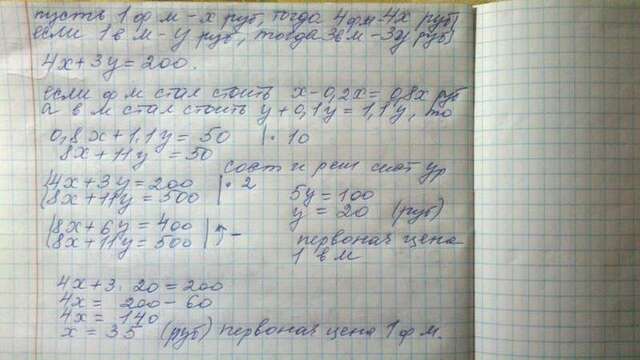 пусть 1 ф м - х руб, тогда 4 фм 4х руб)
если 1 в м - у руб, тогда 3 вм - 3у руб)
4х+3у=200.
если ф м стал стоить х-0,2х=0,8х руб
а в м стал стоить у+0,1у=1,1у, то
0,8х+1,1у=50 |·10
8х+11у=50
сост и реш сист ур
{4х+3у=200 |·2
{8х+11у=500
{8х+6у=400
{8х+11у=500 | -
5у=100
у=20 (руб)
первонач цена
1 в м
4х+3·20=200
4х=200-60
4х=140
х=35 (руб) первонач цена 1 ф м.